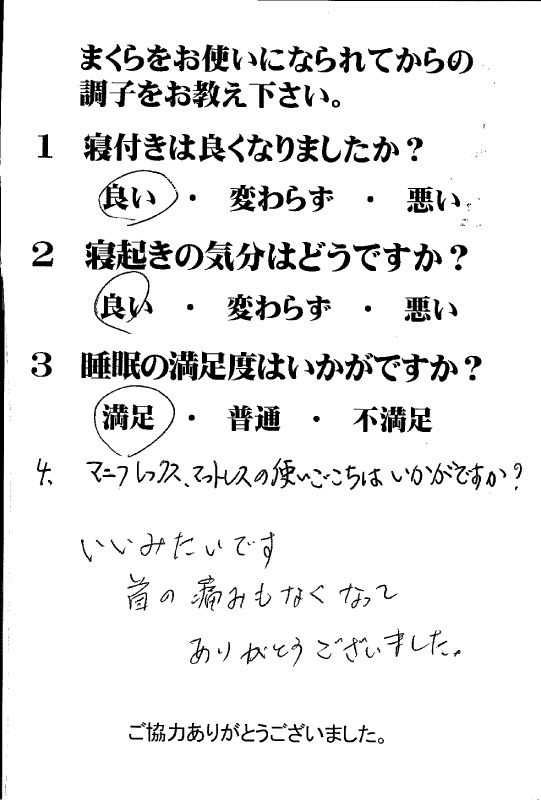 まくらをお使いになられてからの
調子をお教え下さい。
1 寝付きは良くなりましたか？
良い ・ 変わらず ・ 悪い
2 寝起きの気分はどうですか？
良い ・ 変わらず ・ 悪い
3 睡眠の満足度はいかがですか？
満足 ・ 普通 ・ 不満足
4、マニフレックス、マットレスの使いごこちはいかがですか？
いいみたいです
首の痛みもなくなって
ありがとうございました。
ご協力ありがとうございました。